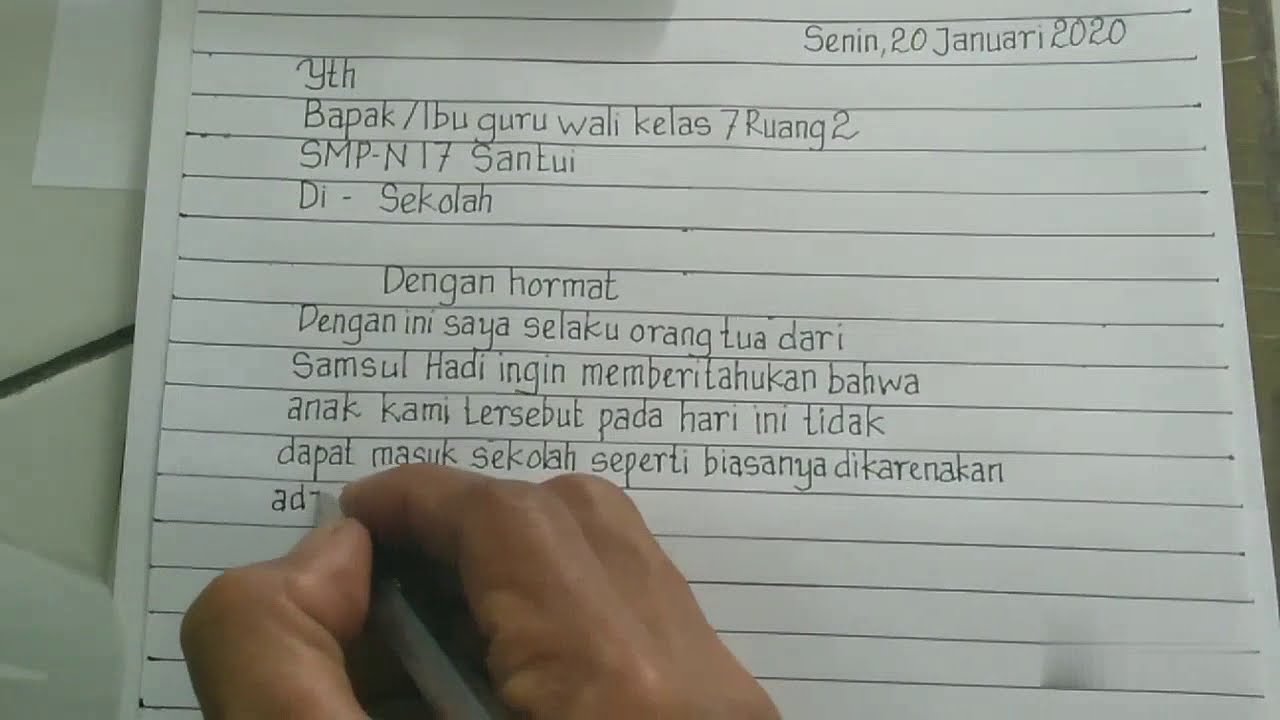 Senin, 20 Januari 2020
Yth
Bapak / Ibu guru wali kelas 7 Ruang 2
SMP-N 17 Santui
Di - Sekolah
Dengan hormat
Dengan ini saya selaku orang tua dari
Samsul Hadi ingin memberitahukan bahwa
anak kami tersebut pada hari ini tidak
dapat masuk sekolah seperti biasanya dikarenakan